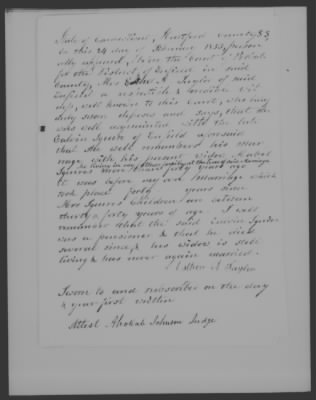 State of Connecticut, Hartford County SS
On this 24 day of February 1853, person
ally appeared, before the Court of Probate
for the District of Enfield in said
County, Mrs Esther A. Taylor of said
Enfield a respectable & credible
well known to this Court, who being
duly sworn deposes and says, that she
was well acquainted with the late
Calvin Squire of Enfield aforesaid
that she well remembers his mar
riage with his present widow Mabel
Squires more than forty years ago
it was before my own marriage which
took place forty years since
Mrs Squires Children are between
thirty & forty years of age. I well
remember that the said Calvin Squire
was a pensioner & that he died
several since, & his widow is still
living & has never again married.
Esther A Taylor
Sworn to and subscribed on the day
& year first written
Attest Aholab Johnson Judge